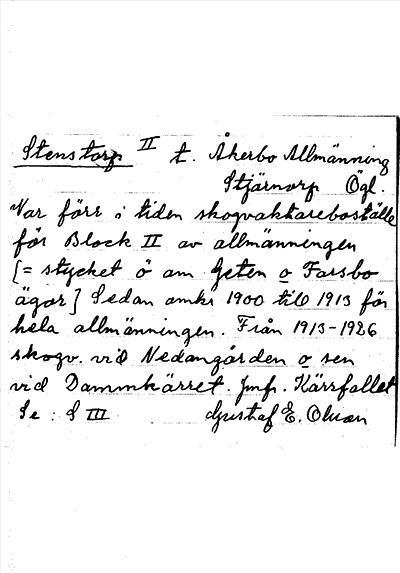 Stenstorp II t. Åkerbo Allmänning
Stjärnorp Ögl.
Var förr i tiden skogvaktareboställe
för Block II av allmänningen
[= stycket ö am Geten o Farsbo
ägor] Sedan omkr 1900 till 1913 för
hela allmänningen. Från 1913-1926
skogv. vid Nedangården o sen
vid Dammkärret. Jmf. Kärrfallet
Se: S III Gustaf E. Olsson